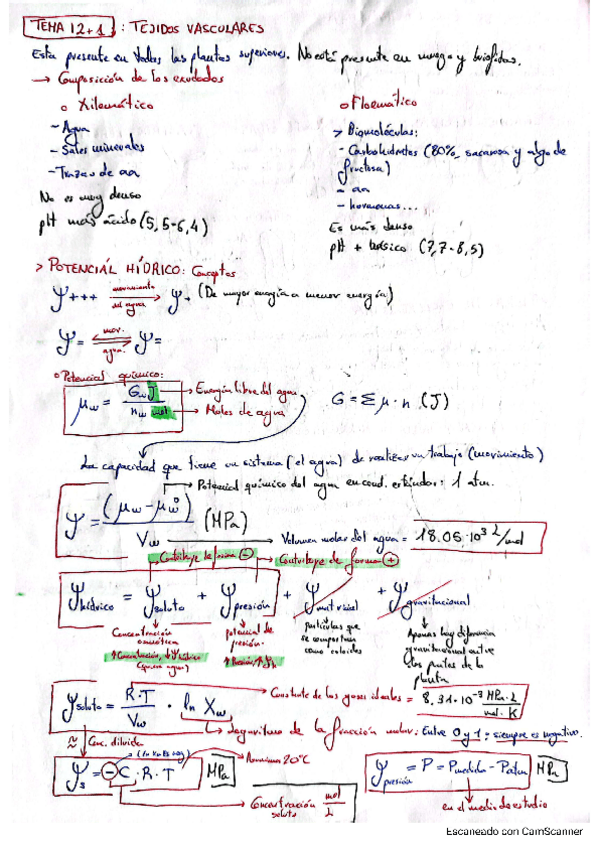 TEMA 12+1: TEJIDOS VASCULARES
Esta presente en todas las plantas superiores. No está presente en musgo y briofitas.
→ Composición de los exudados
o Xilemático
- Agua
- Sales minerales
- Trazas de aa
No es muy denso
pH más ácido (5,5-6,4)
o Floemático
> Biomoléculas:
- Carbohidratos (80%, sacarosa y algo de
fructosa)
- aa
- hormonas...
Es más denso
pH + básico (7,7-8,5)
> POTENCIAL HÍDRICO: Conceptos
Ψ+++ movimiento del agua → Ψ+ (De mayor energía a menor energía)
Ψ= mov. agua Ψ=
o Potencial químico:
μw = Gw J / nw mol
→ Energía libre del agua
→ Moles de agua
G = Σ μ·n (J)
La capacidad que tiene un sistema (el agua) de realizar un trabajo (movimiento)
→ Potencial químico del agua en cond. estándar: 1 atm.
Ψ = (μw - μw°) / Vw (MPa)
→ Volumen molar del agua = 18.05·10³ L/mol
Contribuye de forma ⊖
Contribuye de forma ⊕
Ψhídrico = Ψsoluto + Ψpresión + Ψmatricial + Ψgravitacional
Concentración osmótica
↑Concentración, ↓Ψhídrico
(quiere agua)
potencial de presión.
↑Presión, ↑Ψh
partículas que se comportan como coloides
Apenas hay diferencia gravitacional entre los puntos de la planta
Ψsoluto = R·T / Vw · ln Xw
→ Constante de los gases ideales = 8,31·10⁻³ MPa·L / mol·K
→ Logaritmo de la fracción molar: Entre 0 y 1; siempre es negativo.
≈ Conc. diluida
Ψs = -C·R·T MPa
→ Asumimos 20°C
→ Concentración soluto mol/L
Ψpresión = P = Pmedida - Patm MPa
en el medio de estudio
Escaneado con CamScanner